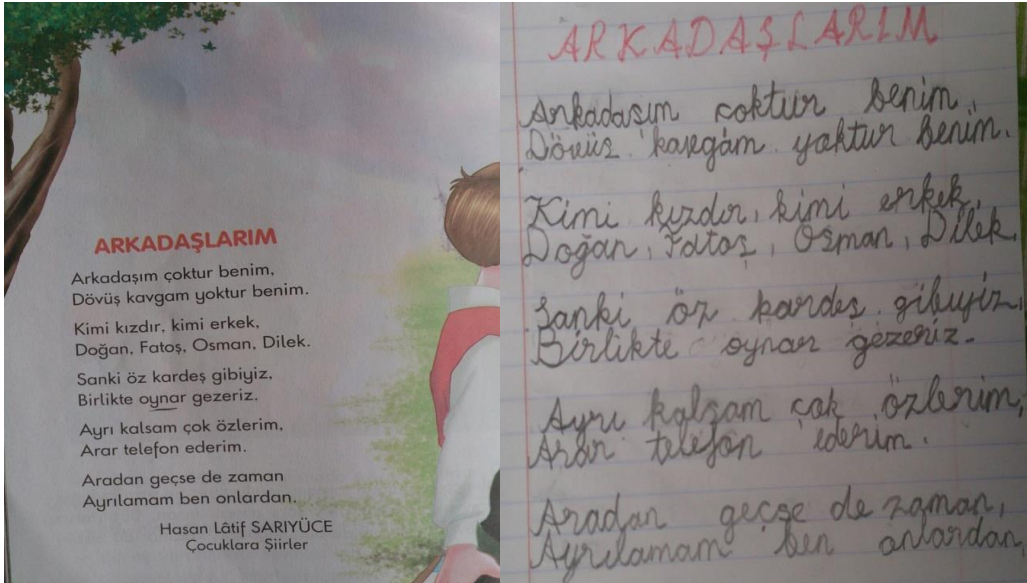 ARKADAŞLARIM
Arkadaşım çoktur benim,
Dövüş kavgam yoktur benim.
Kimi kızdır, kimi erkek,
Doğan, Fatoş, Osman, Dilek.
Sanki öz kardeş gibiyiz,
Birlikte oynar gezeriz.
Ayrı kalsam çok özlerim,
Arar telefon ederim.
Aradan geçse de zaman
Ayrılamam ben onlardan.
Hasan Lâtif SARIYÜCE
Çocuklara Şiirler
ARKADAŞLARIM
Arkadaşım çoktur benim,
Dövüş kavgam yoktur benim.
Kimi kızdır, kimi erkek,
Doğan, Fatoş, Osman, Dilek.
Sanki öz kardeş gibiyiz,
Birlikte oynar gezeriz.
Ayrı kalsam çok özlerim,
Arar telefon ederim.
Aradan geçse de zaman,
Ayrılamam ben onlardan,